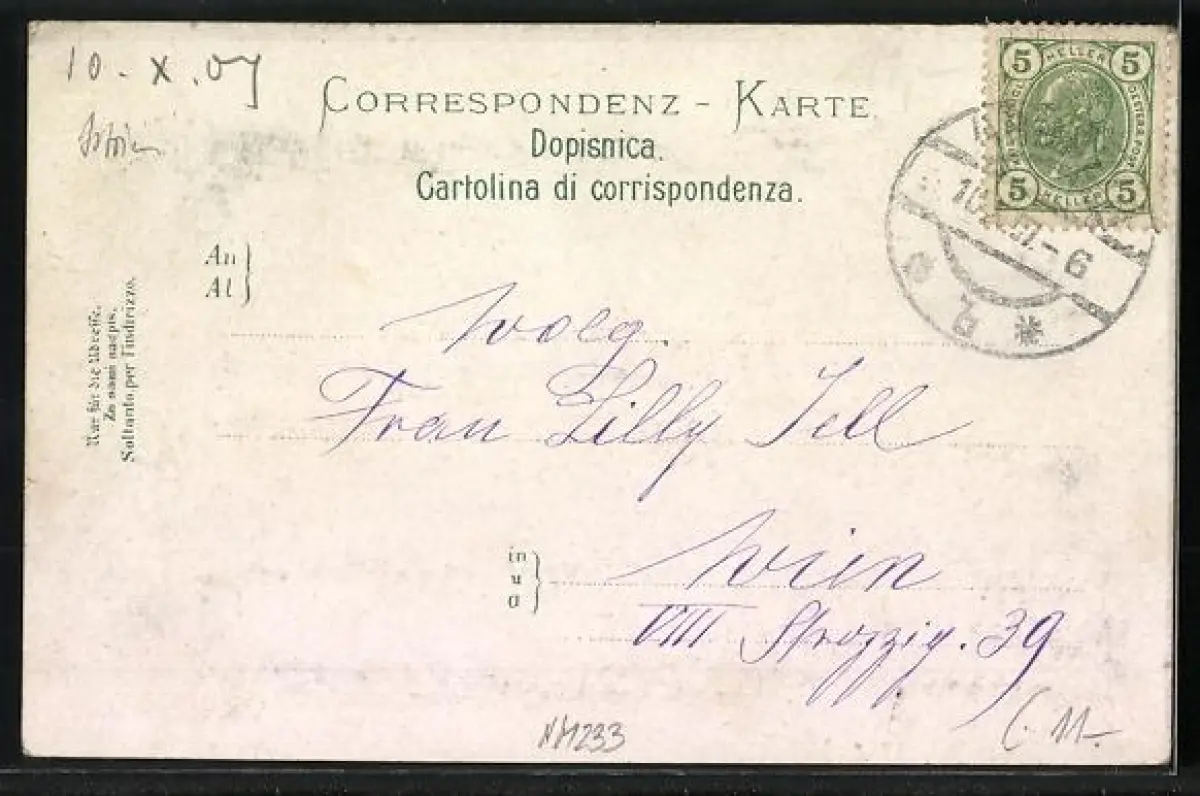 10 - X. 07
CORRESPONDENZ - KARTE.
Dopisnica.
Cartolina di corrispondenza.
5 HELLER 5
5 HELLER 5
10. -6
An
Al
Nur für die Adresse.
Za sami nadpis.
Soltanto per l'indirizzo.
Wolg.
Frau Lilly Tell
in
u
a
Wien
VIII Strozzig. 39
1233
11.-